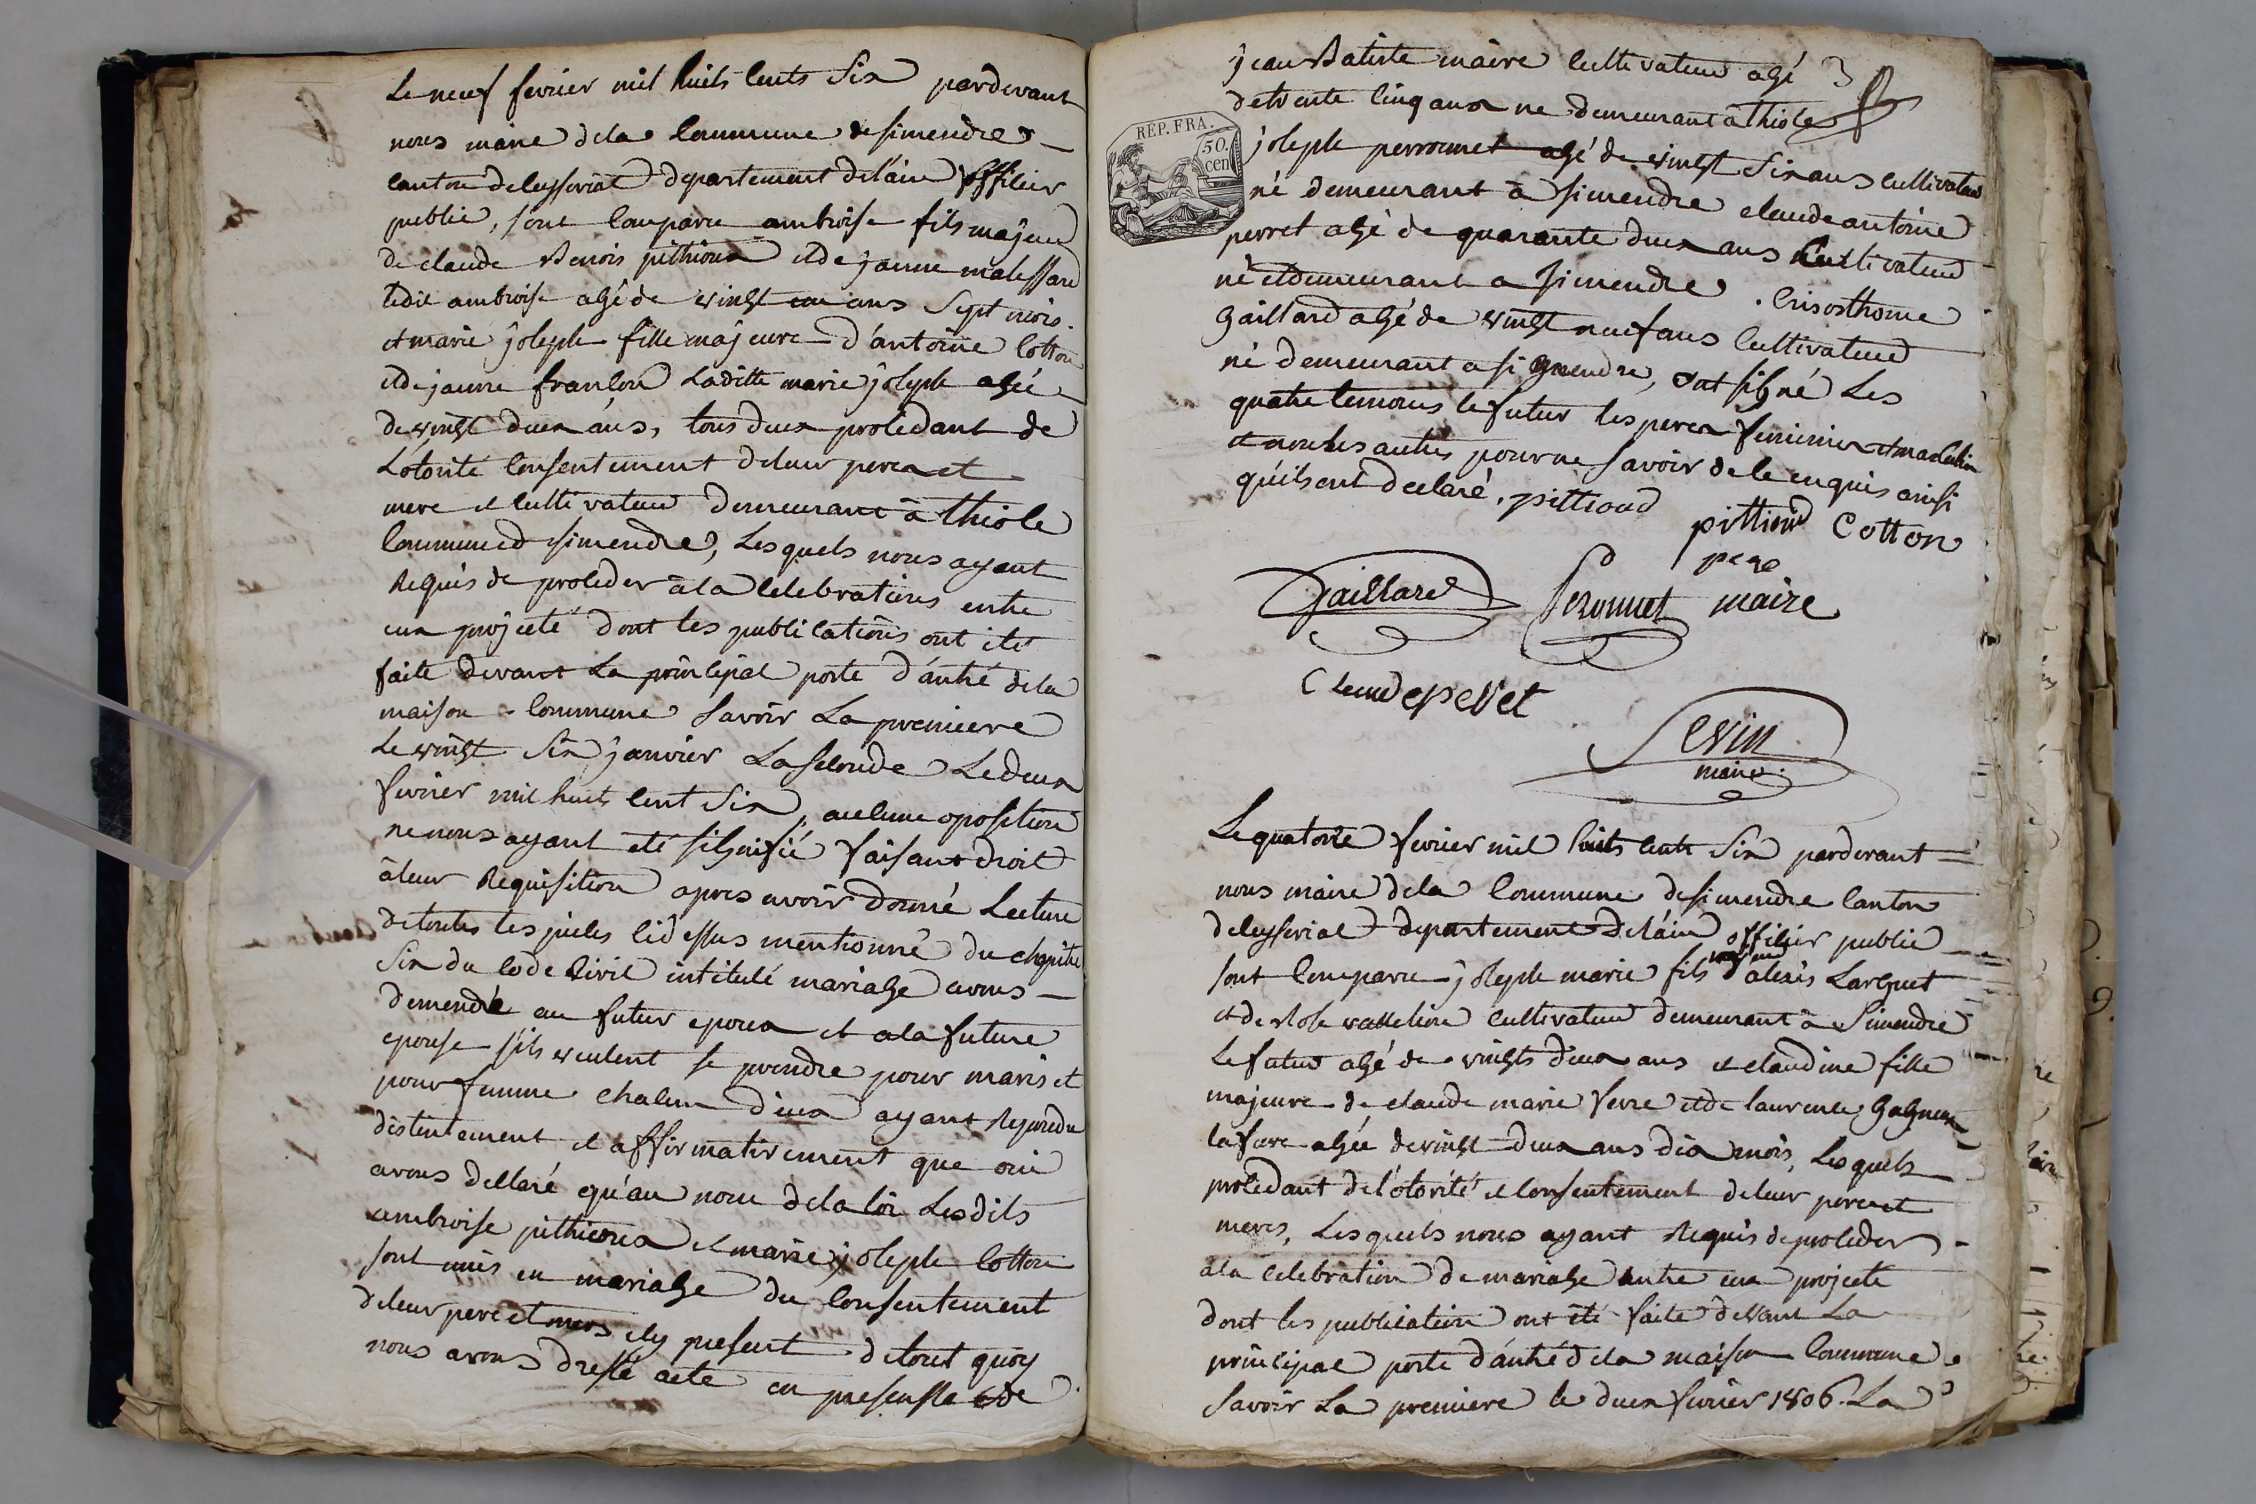 Le neuf fevrier mil huits cents Six pardevant
nous maire dela Commune de simendre
canton de ceyseriat departement delain officier
public, sont comparu ambroise fils majeur
de claude Benois pithioux et de janne malessard
ledit ambroise agé de vingt un ans Sept mois
et marie joseph fille majeure d'antoine Cotton
et de janne françon Laditte marie joseph agée
de vingt deux ans, tous deux procedant de
L'otorité Consentement deleur perea et
mere et cultivateur demeurant à thiole
Commune d simendre, Lesquels nous ayant
Requis de proceder a la celebrations entre
eux projeté dont les publications ont été
faite devant La principal porte d'antré dela
maison Commune Savoir La premiere
Le vingt Six janvier La seconde Le deux
fevrier mil huit cent Six, aucune oposition
ne nous ayant eté signifié faisant droit
à leur Requisition apres avoir donné Lecture
de toutes les pieces cidessus mentionné du chapitre
Six du code Civil intitulé mariage avons
demendé au futur epoux et a la future
epouse s'ils veulent se prendre pour maris et
pour femme chacun d'eux ayant Reponedu
distentement et affirmativement que oui
avons declaré qu'au nom de la loi Lesdits
ambroise pithioux et marie joseph Cotton
sont unis en mariage du Consentement
deleur pere et meres icy present de tout quoy
nous avons dressé acte en presense de
jean Batiste maire Cultivateur agé 3
detrente Cinq ans ne demeurant à thiole
REP. FRA.
50
cen
joseph perronnet agé de vingt Six ans cultivateur
né demeurant à simendre claude antoine
perret agé de quarante deux ans Cultivateur
né et demeurant a simendre . Crisosthome
Gaillard agé de vingt neuf ans Cultivateur
né demeurant a simendre, ont signé Les
quatre temoins le futur les perea feminier et masculin
et non les autres pour ne savoir de le enquis ainsi
qu'ils ont declaré. pittioud
pittioud Cotton
pere
Gaillard Peronnet maire
Claudeperet
Sevin
maire.
Le quatorze fevrier mil huits cents Six pardevant
nous maire dela Commune de simendre Canton
de ceyseriat departement Delain officier public
sont Comparu joseph marie fils majeur d'alexis Larguet
et de Rose vatteliere Cultivateur demeurant à Simendre
Le futur agé de vingts deux ans et claudine fille
majeure de claude marie Verre et de laurence Gagneux
la fure agée de vingt deux ans dix mois, Lesquels
procedant de l'otorité et consentement deleur pere et
meres, Lesquels nous ayant Requis de proceder
a la celebration de mariage entre eux projeté
dont les publication ont été faite devant La
principal porte d'antré dela maison Commune
Savoir La premiere le deux fevrier 1806. La